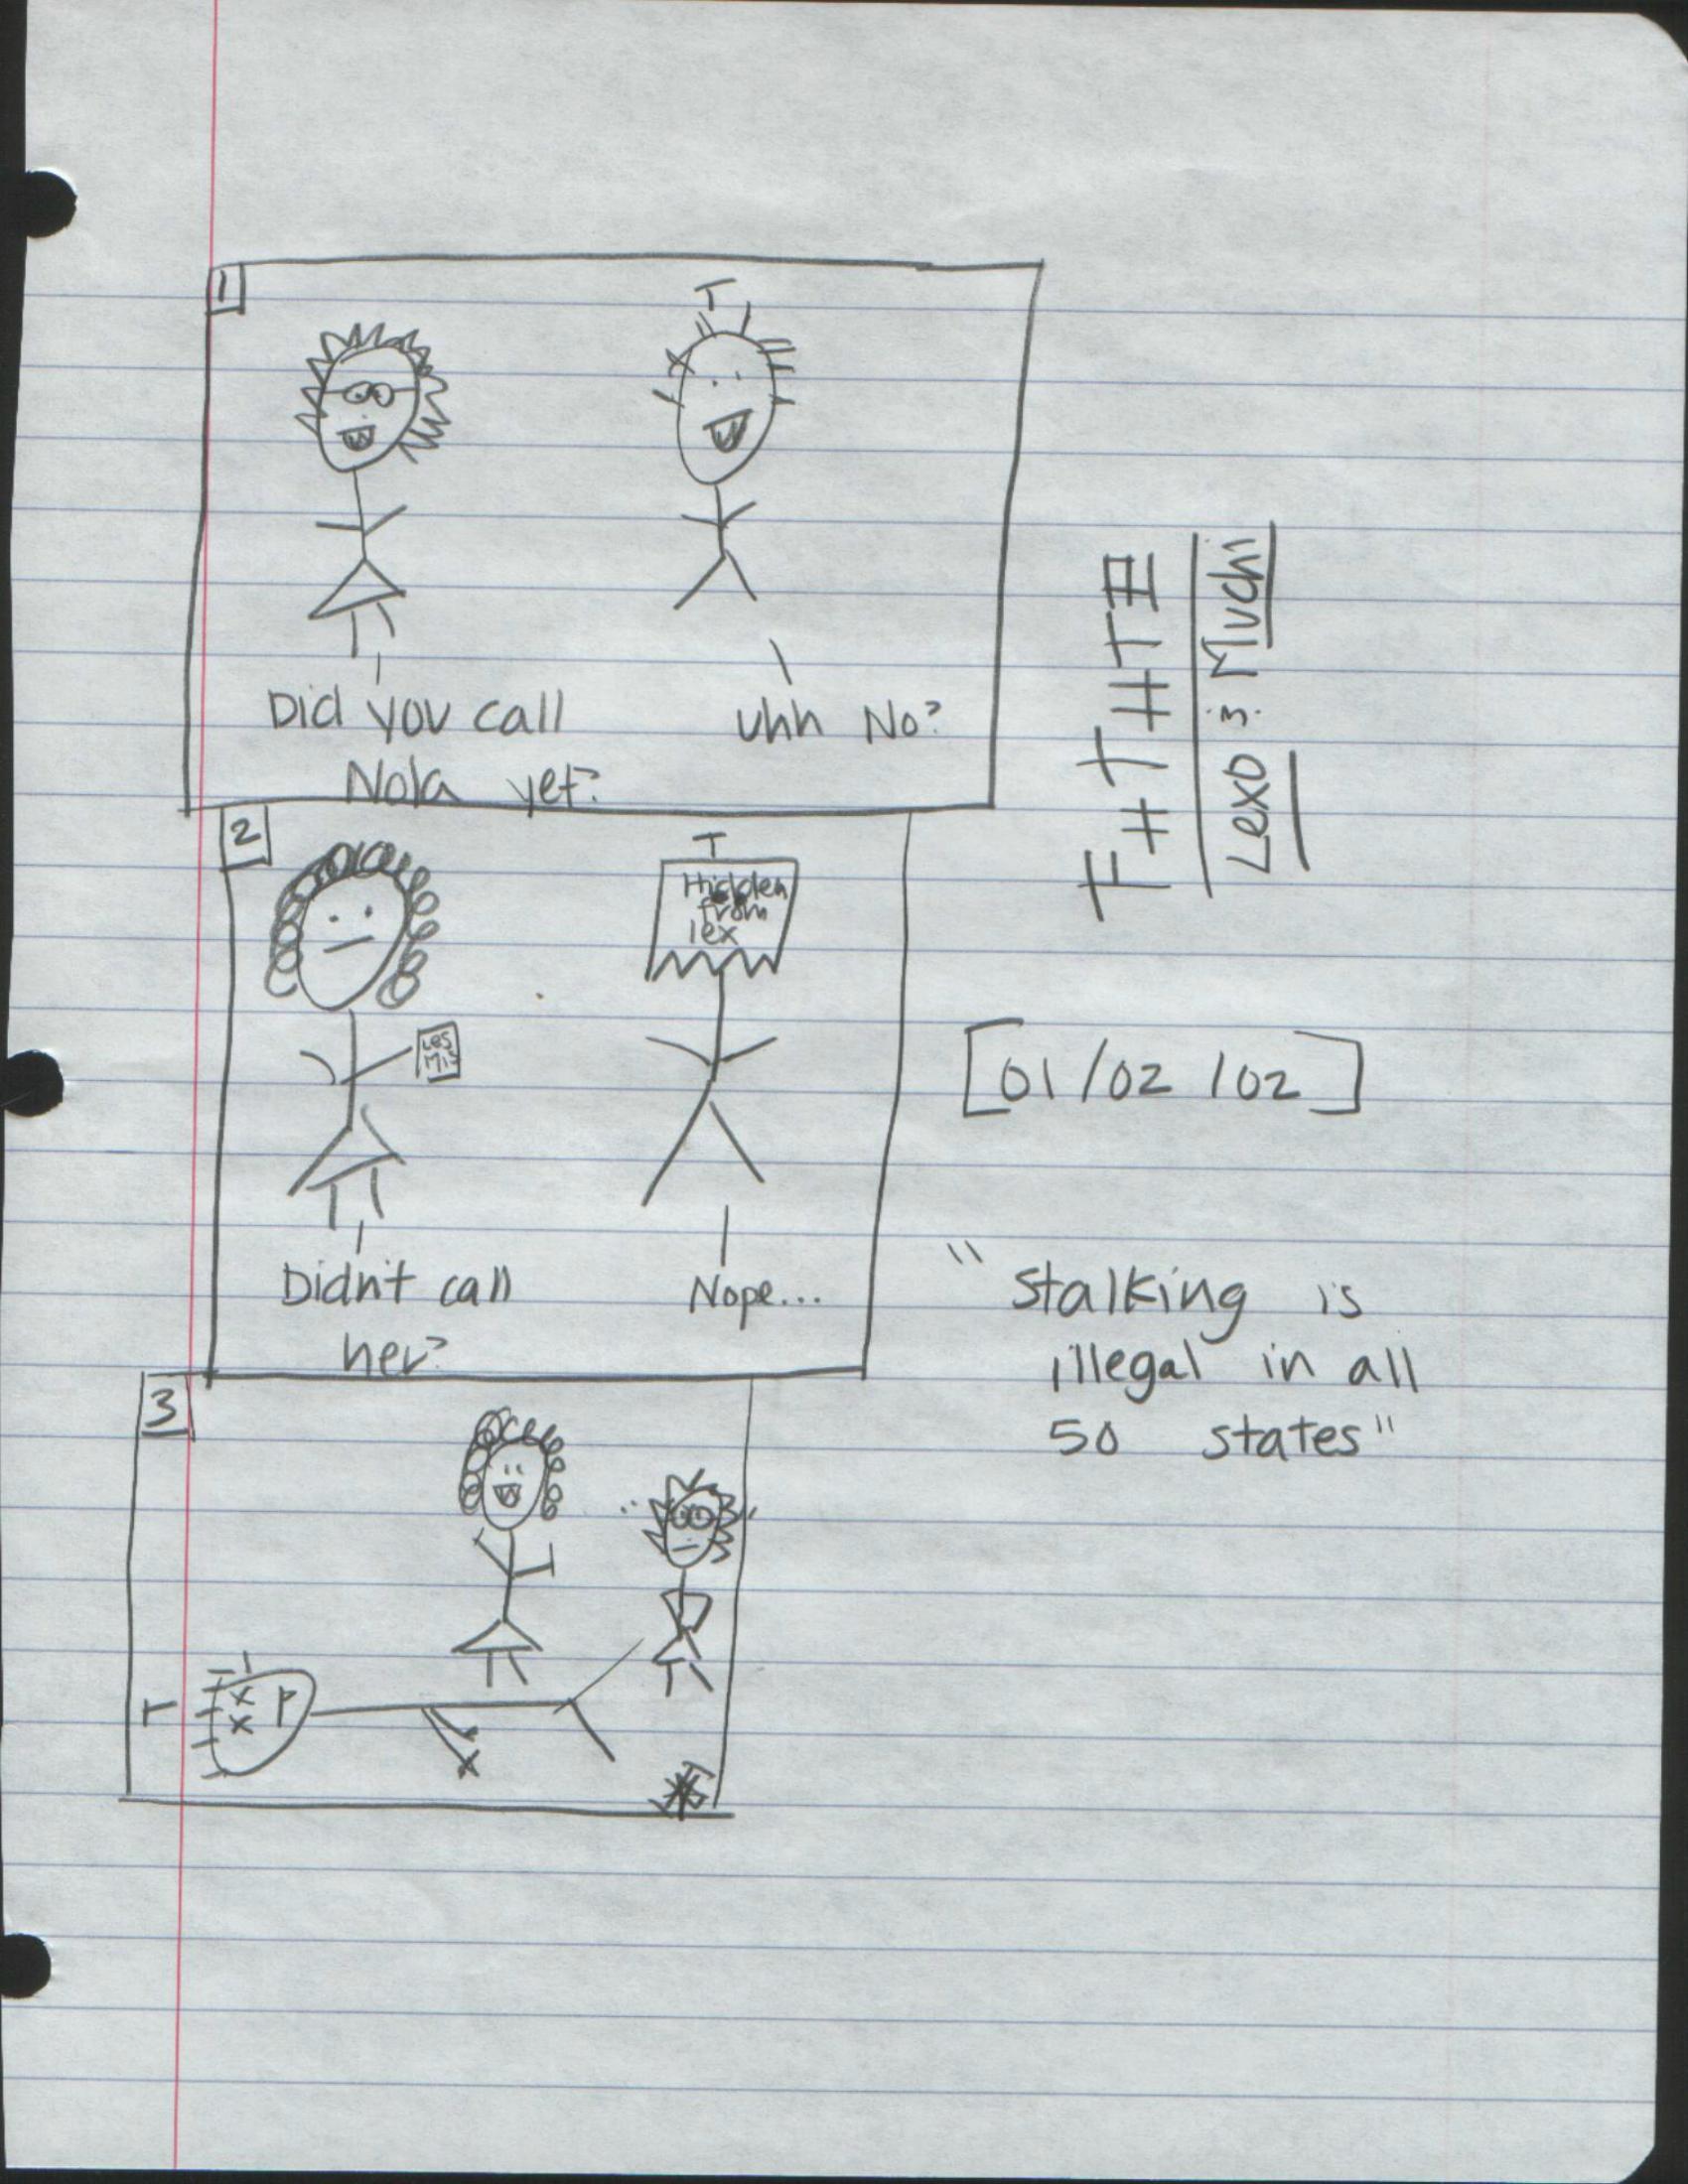 1
T
Did you call
Nola yet?
Uhh No?
2
T
Hidden
from
lex
Les
Mis
Didn't call
her?
Nope...
3
Lexo : Muchi
[01/02/02]
"Stalking is
illegal in all
50 states"